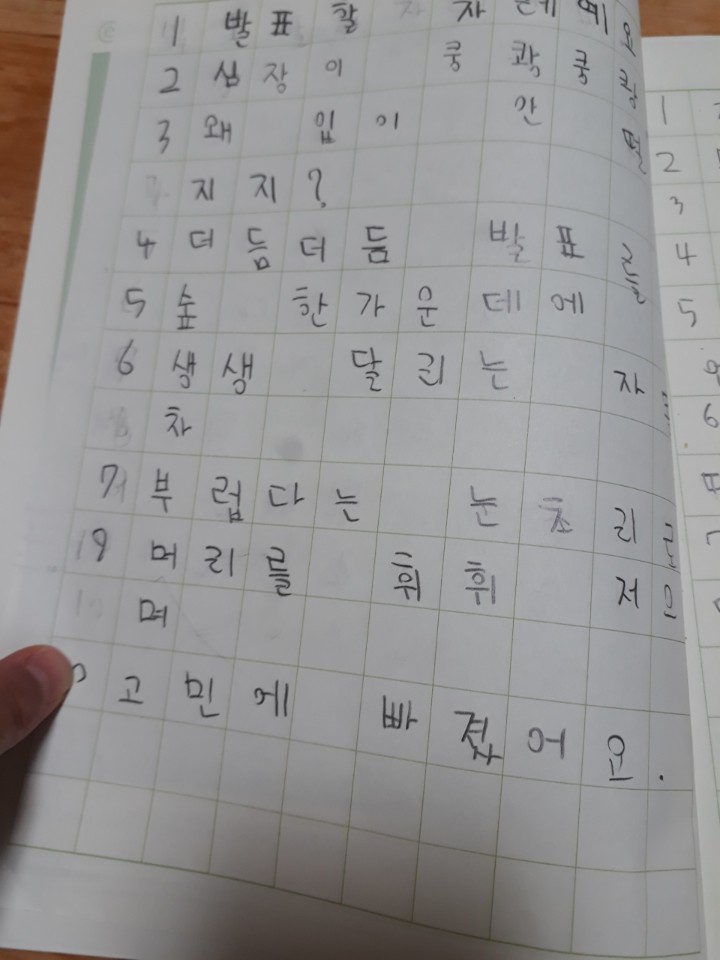 1 발표할
2 심장이 쿵쾅쿵쾅
3 왜 입이 안 떨
지지?
4 더듬더듬 발표를
5 숲 한가운데에
6 생생 달리는 자
차
7 부럽다는 눈초리로
9 머리를 휘휘 저으
며
고민에 빠졌어요.
1
2
3
4
5
6